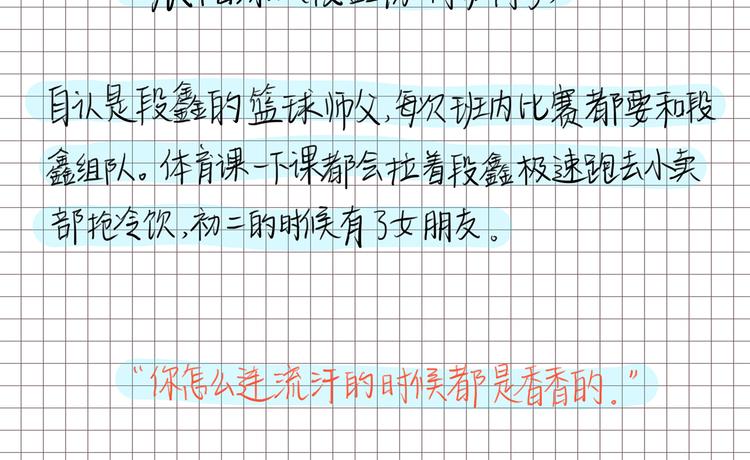 自认是段鑫的篮球师父,每次班内比赛都要和段
鑫组队。体育课一下课都会拉着段鑫极速跑去小卖
部抢冷饮,初二的时候有了女朋友。
“你怎么连流汗的时候都是香香的.”